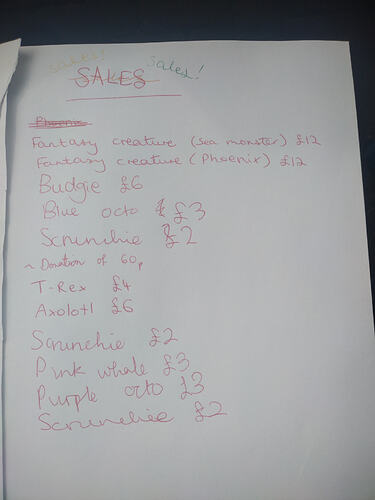 sales! Sales!
SALES
Phoenix
Fantasy creature (sea monster) £12
Fantasy creature (Phoenix) £12
Budgie £6
Blue octo £3
Scrunchie £2
~ Donation of 60p
T-Rex £4
Axolotl £6
Scrunchie £2
Pink whale £3
Purple octo £3
Scrunchie £2